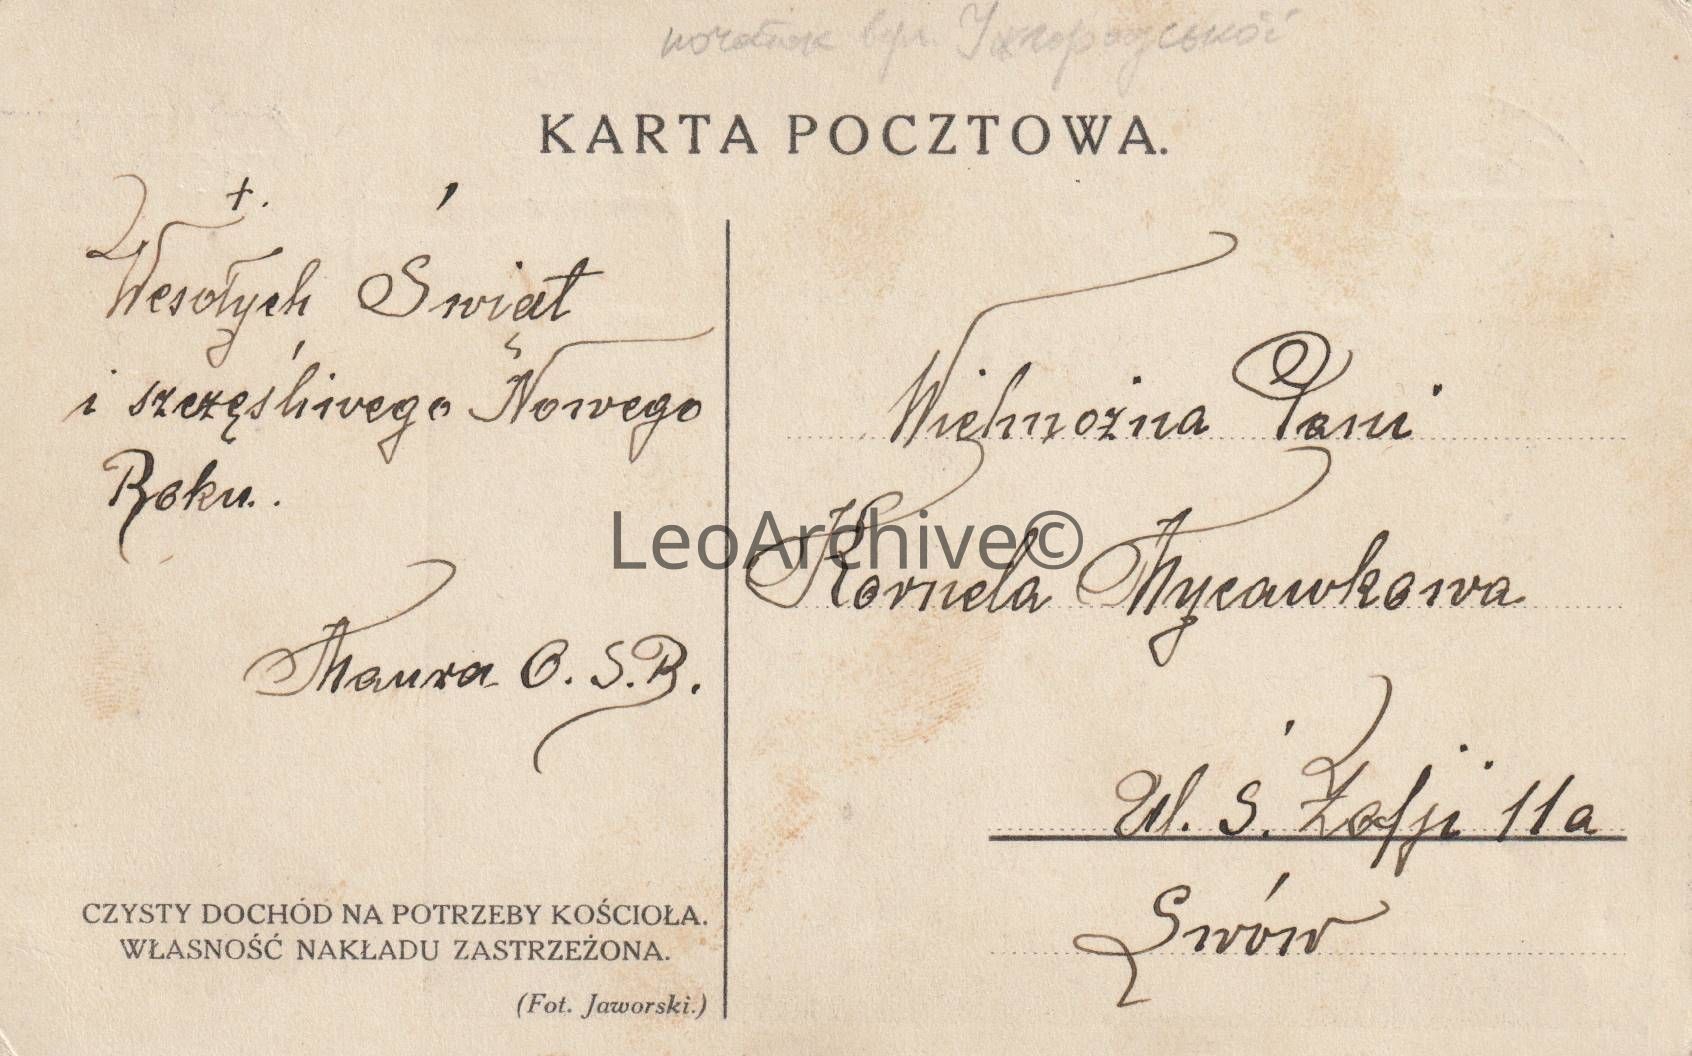 початок вул. Ужгородської
KARTA POCZTOWA.
+.
Wesołych Świąt
i szczęśliwego Nowego
Roku..
Maura O. S. B.
Wielmożna Pani
Kornela Mycawkowa
Ul. Ś. Zofji 11a
Lwów
CZYSTY DOCHÓD NA POTRZEBY KOŚCIOŁA.
WŁASNOŚĆ NAKŁADU ZASTRZEŻONA.
(Fot. Jaworski.)
LeoArchive©